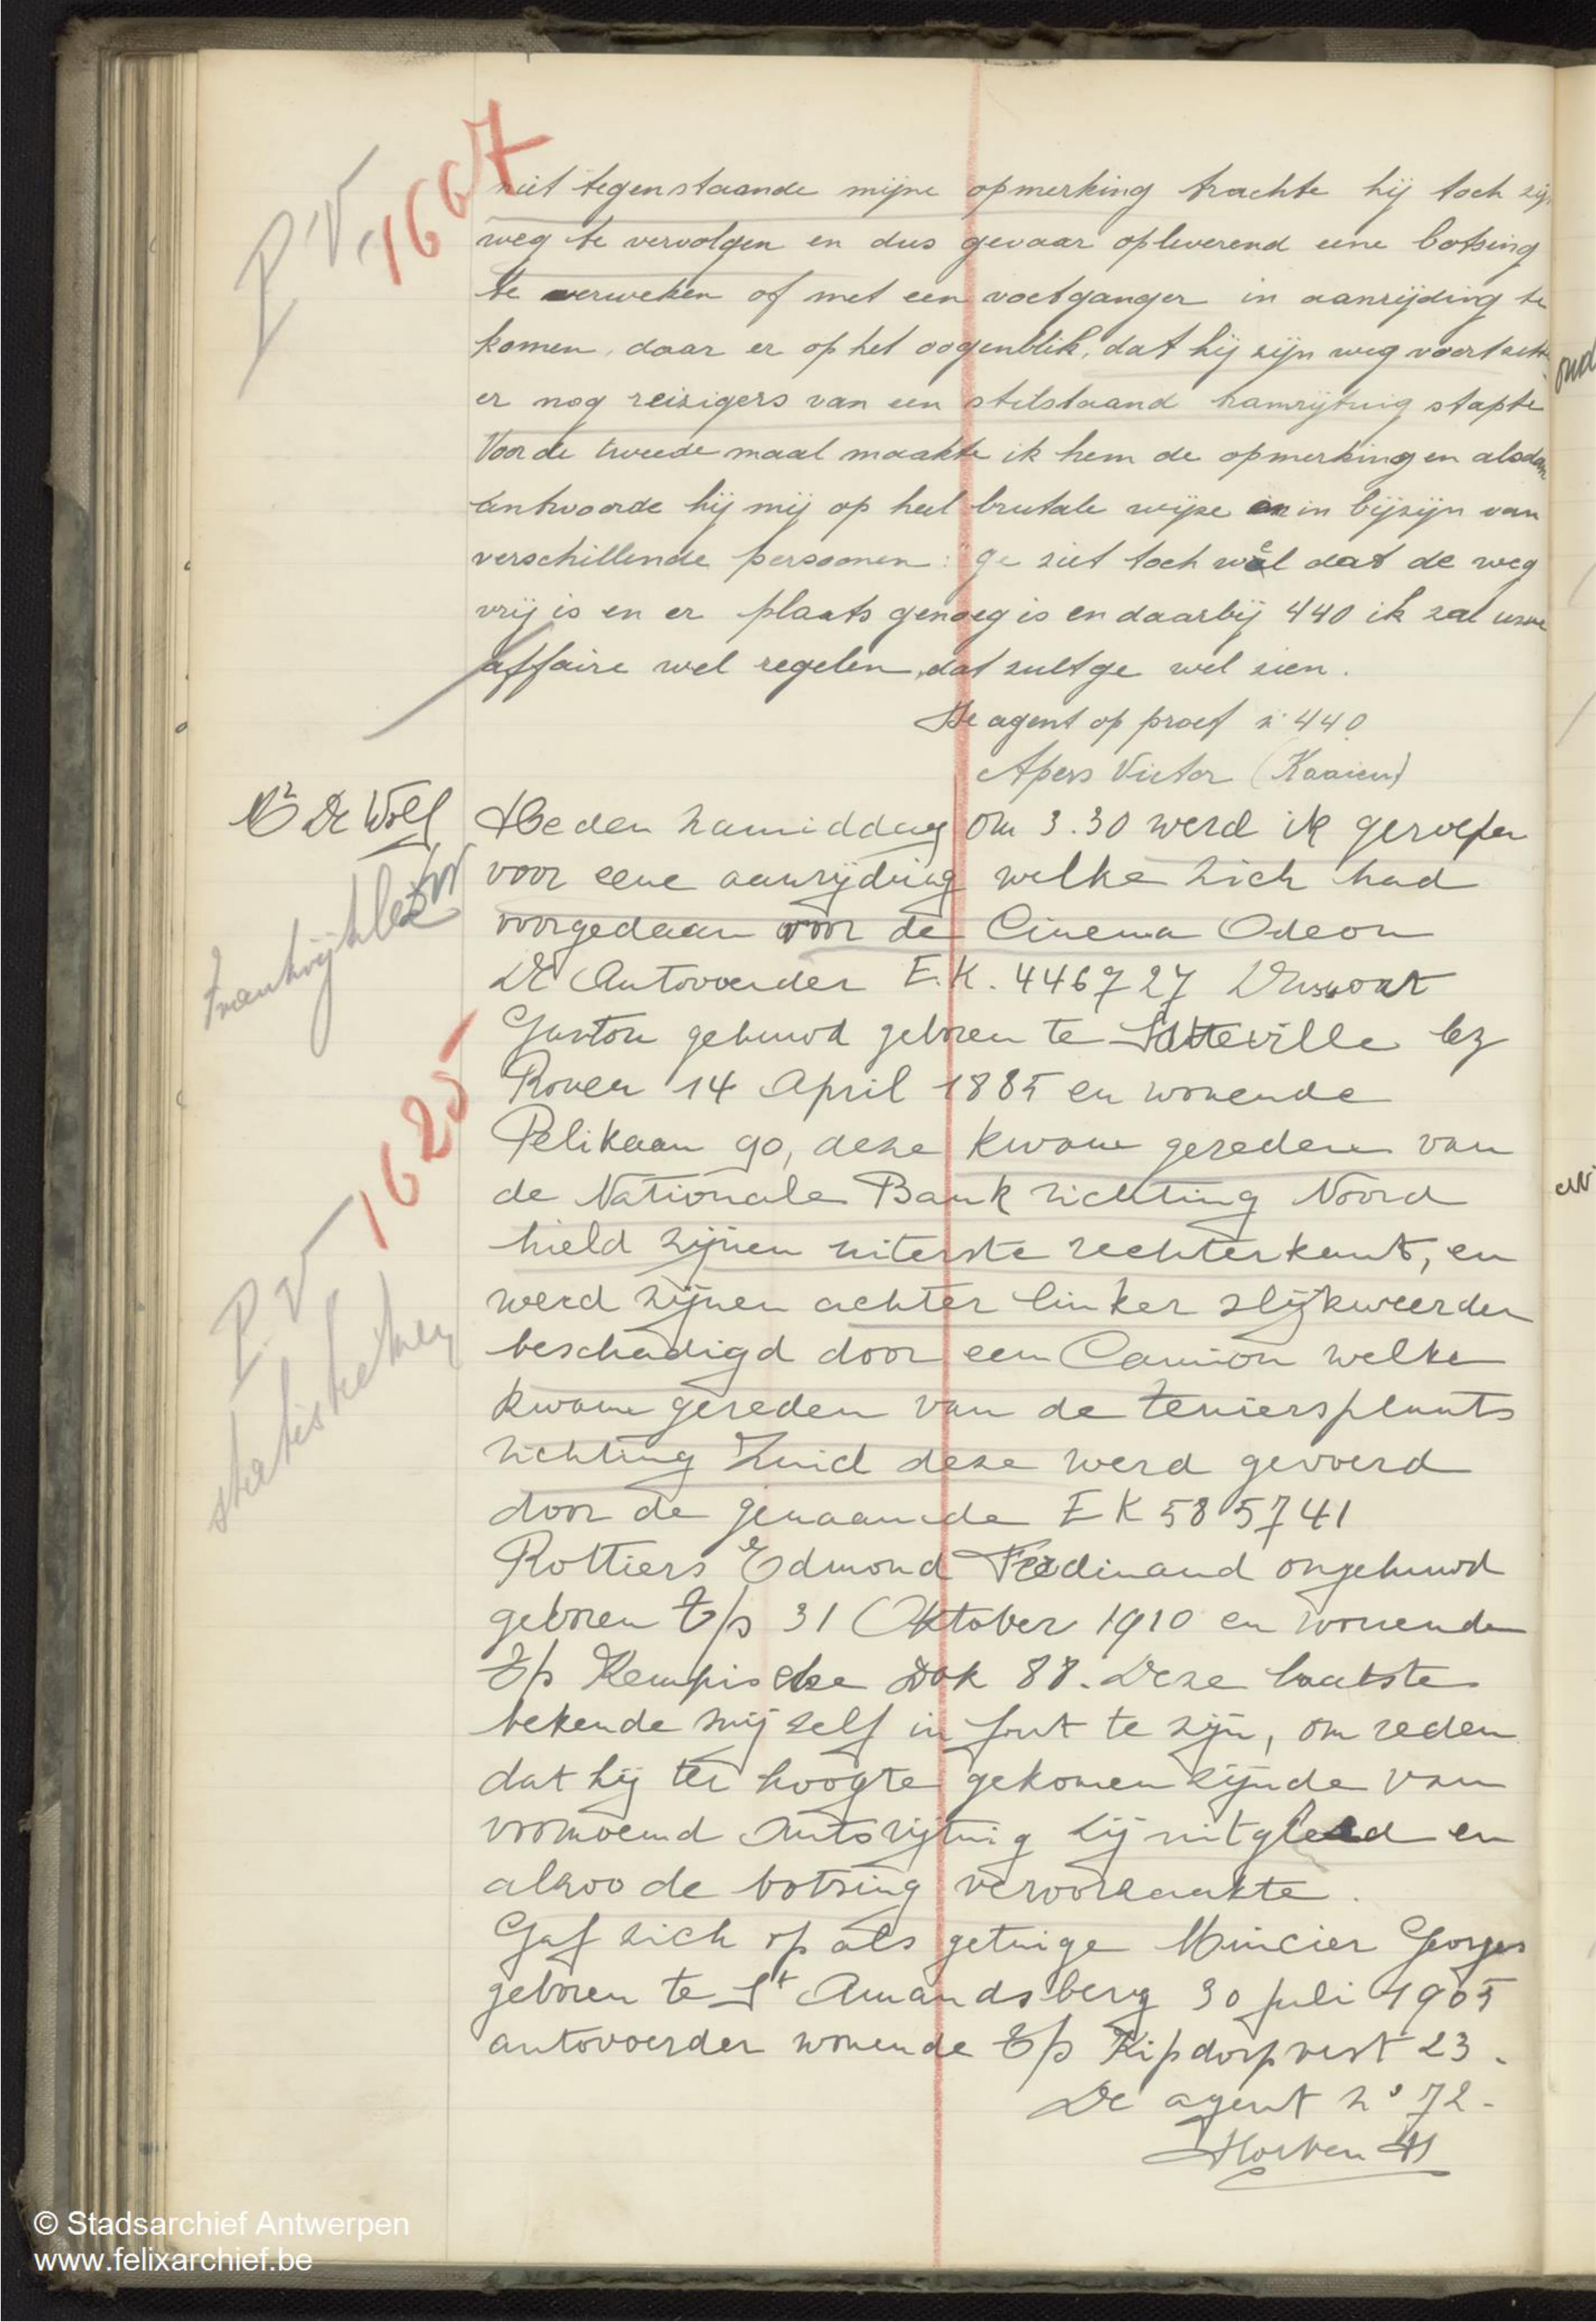 P V 1667
niet tegenstaande mijne opmerking trachte hij toch zijn
weg te vervolgen en dus gevaar opleverend eene botsing
te verweken of met een voetganger in aanrijding te
komen, daar er op het oogenblik, dat hij zijn weg voortzett
er nog reizigers van een stilstaand tramrijtuig stapte
Voor de tweede maal maakte ik hem de opmerking en alsdan
antwoorde hij mij op heel brutale wijze en in bijzijn van
verschillende persoonen: "ge ziet toch wel dat de weg
vrij is en er plaats genoeg is en daarbij 440 ik zal uwe
affaire wel regelen, dat zult ge wel zien.
De agent op proef n: 440
Apers Victor (Kaaien)
Mr De Wolf
Frankrijklei
P.V 1625
statistieken
Heden namiddag om 3.30 werd ik geroepen
voor eene aanrijding welke zich had
voorgedaan voor de Cinema Odeon
De Autovoerder E.K. 446727
Gaston gehuwd geboren te Sotteville lez
Rouen 14 April 1885 en wonende
Pelikaan 90, deze kwam gereden van
de Nationale Bank richting Noord
hield zijnen uiterste rechterkant, en
werd zijnen achter linker slijkweerder
beschadigd door een Camion welke
kwam gereden van de teniersplaats
richting Zuid deze werd gevoerd
door de genaamde E K 585741
Rottiers Edmond Ferdinand ongehuwd
geboren t/s 31 Oktober 1910 en wonende
t/s Kempische Dok 88. Deze laatste
bekende mij zelf in fout te zijn, om reden
dat hij ter hoogte gekomen zijnde van
voornoemd Autorijtuig hij uitgleed en
alzoo de botsing veroorzaakte.
Gaf zich op als getuige Mincier Georges
geboren te St Amandsberg 30 juli 1905
autovoerder wonende t/s Kipdorpvest 23.
De agent n° 72.
© Stadsarchief Antwerpen
www.felixarchief.be